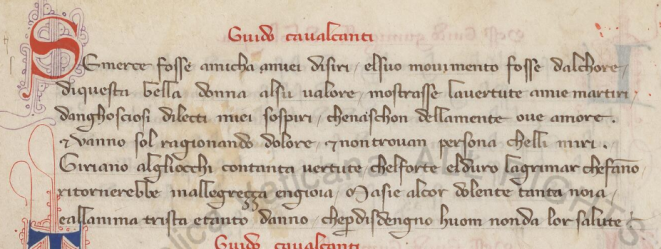 Guido cavalcanti
SEmerce fosse amicha amiei disiri / elsuo mouimento fosse dalchore /
diquesta bella donna alsu ualore / mostrasse lauertute amie martiri /
danghosciosi dilecti miei sospiri / chenaischon dellamente oue amore .
& uanno sol ragionando dolore / & nontrouan persona chelli miri .
Giriano algliocchi contanta uertute chelforte elduro lagrimar chefãno /
ritornerebbe inallegrezza engioia / Masie alcor dolente tanta noia /
eallanima trista etanto danno / cheꝑdisdengno huom nonda lor salute /
Guido cavalcanti